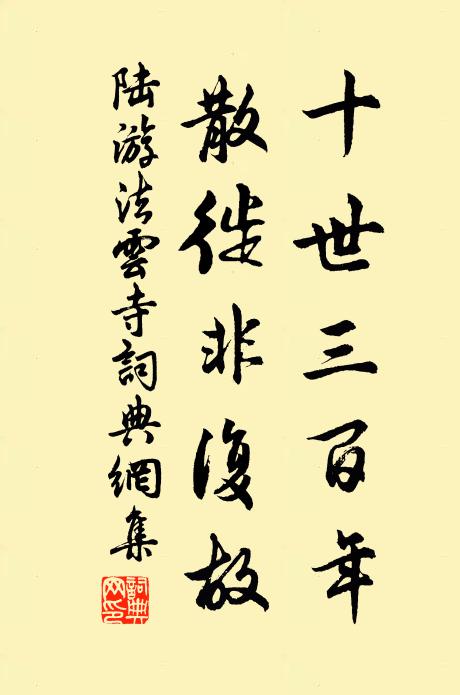 十世三百年
散徙非復故
陸游法雲寺詞典網集
詞典網印